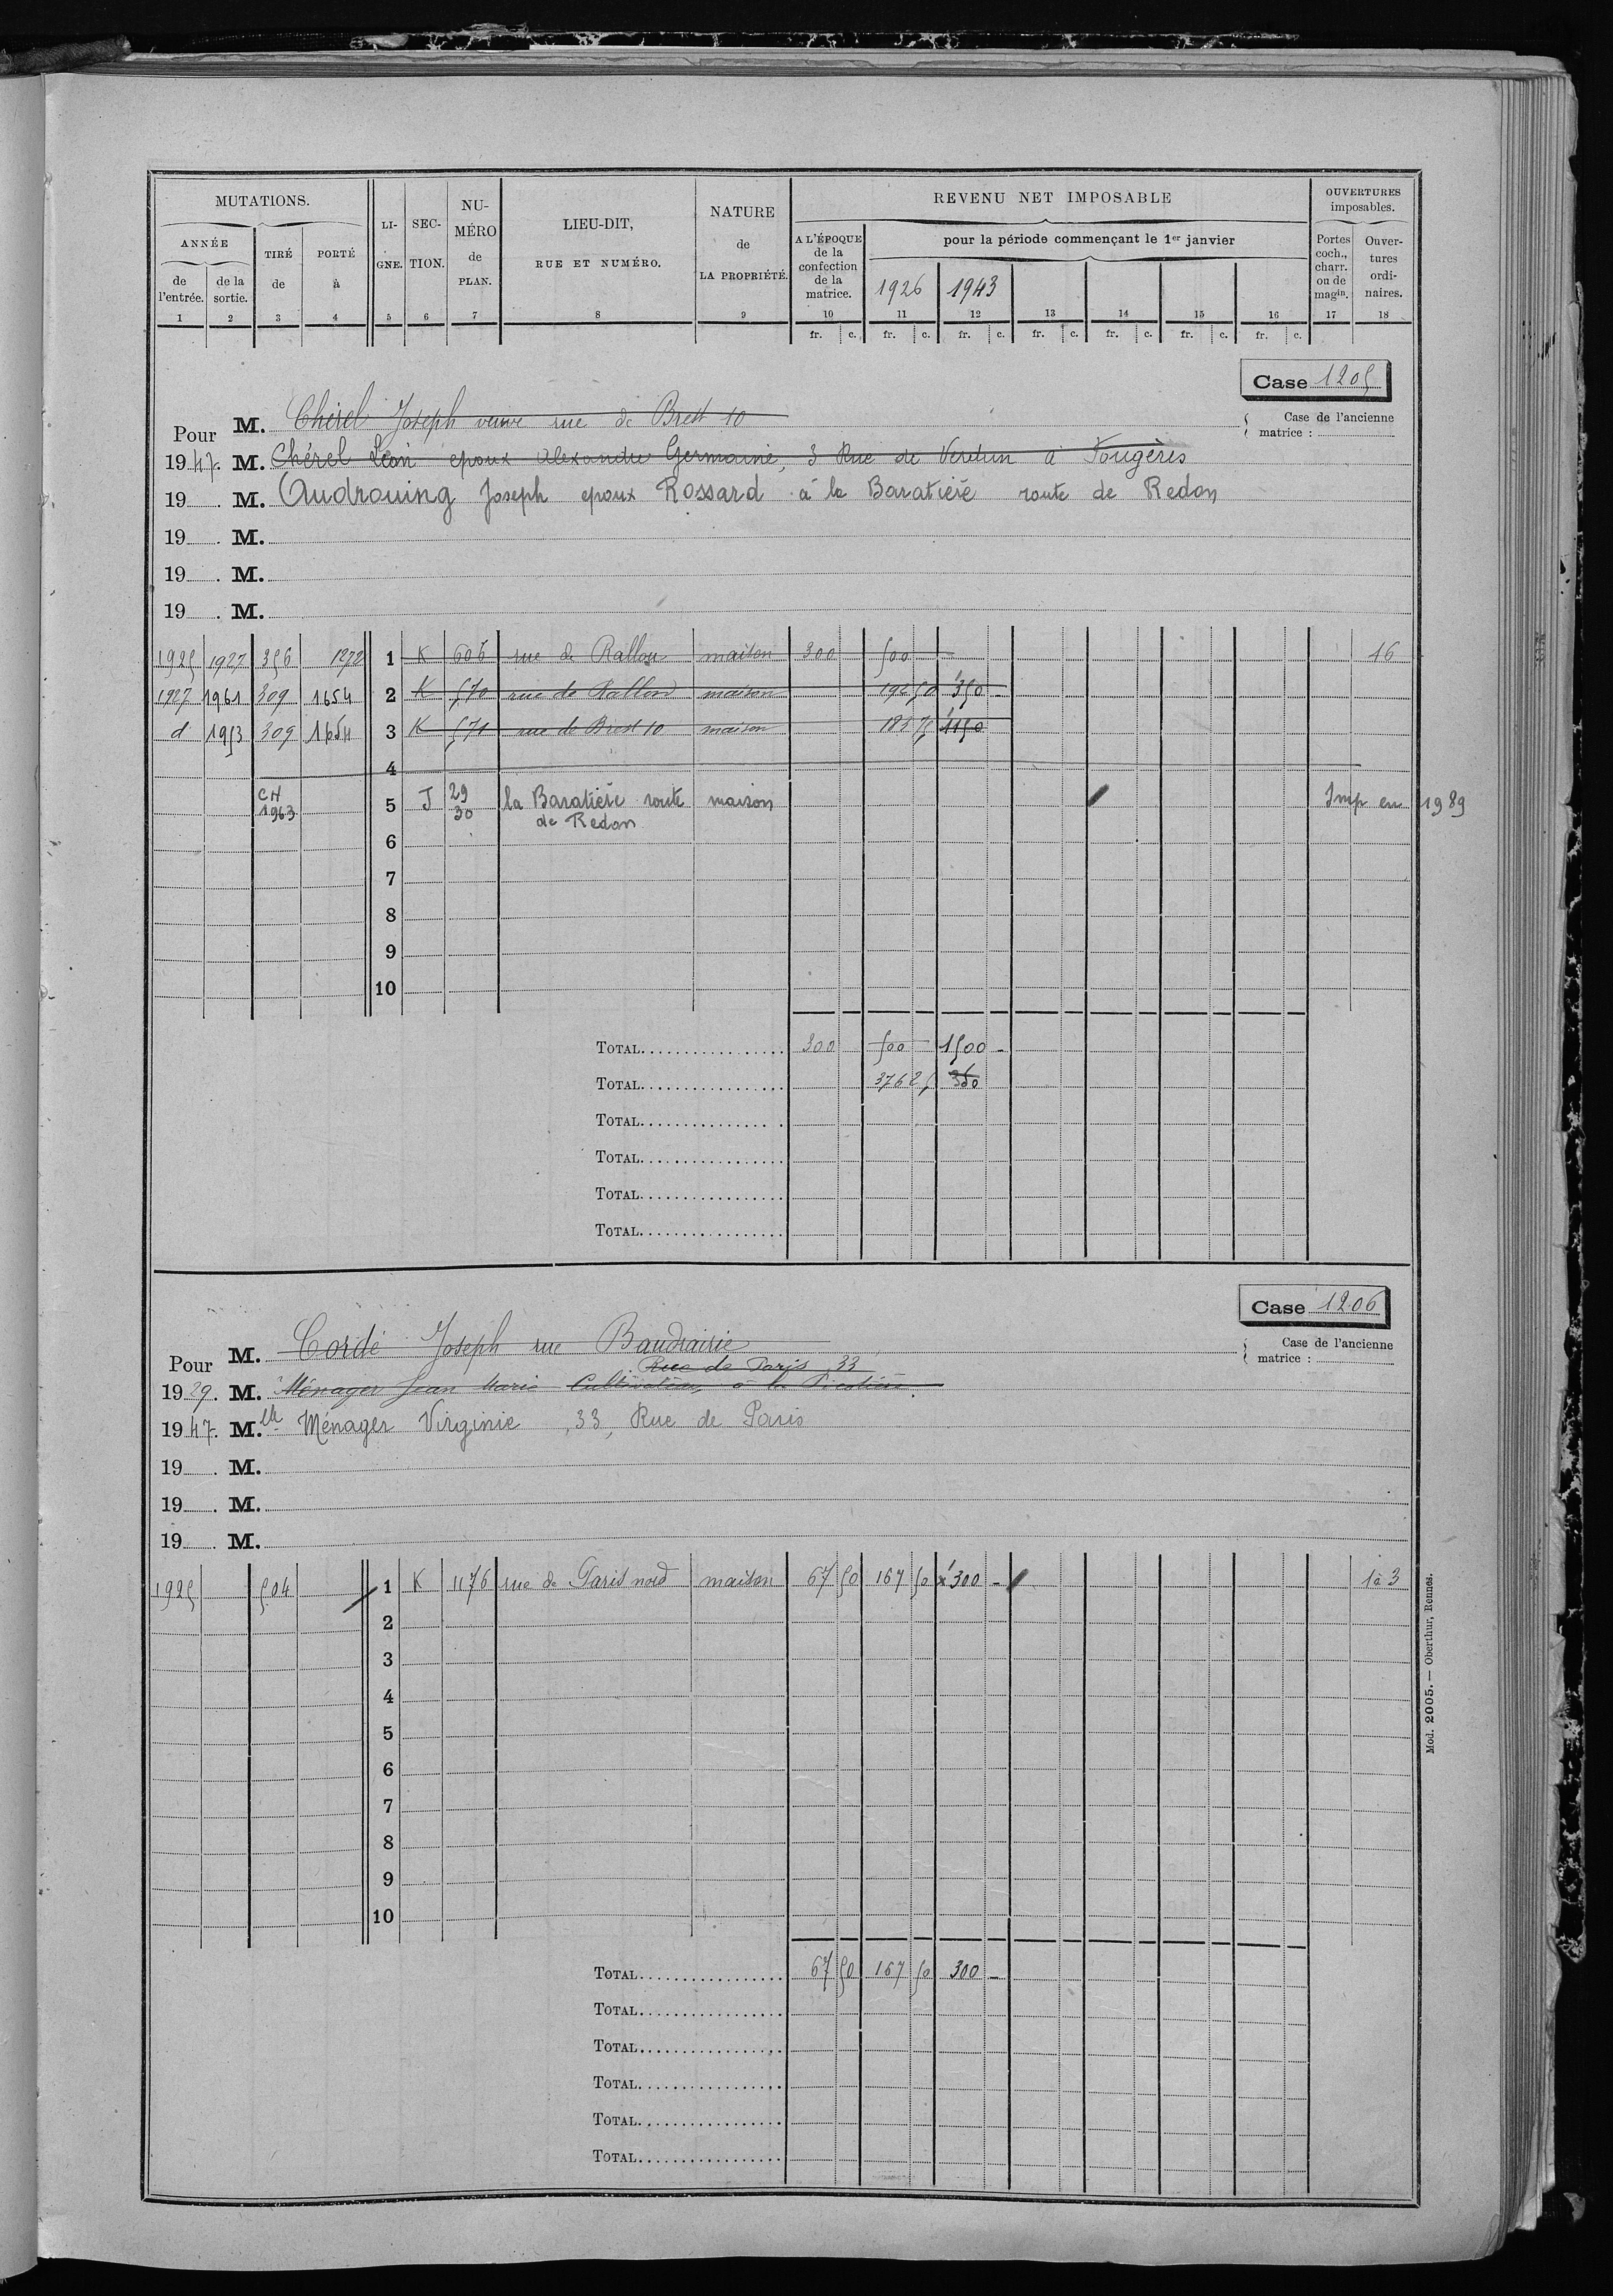 MUTATIONS.
ANNÉE
de l'entrée.
de la sortie.
TIRÉ de
PORTÉ à
LI-GNE.
SEC-TION.
NU-MÉRO de PLAN.
LIEU-DIT, RUE ET NUMÉRO.
NATURE de LA PROPRIÉTÉ.
REVENU NET IMPOSABLE
A L'ÉPOQUE de la confection de la matrice.
pour la période commençant le 1er janvier
1926 1943
OUVERTURES imposables.
Portes coch., charr. ou de magin.
Ouver-tures ordi-naires.
1 2 3 4 5 6 7 8 9 10 11 12 13 14 15 16 17 18
fr. c. fr. c. fr. c. fr. c. fr. c. fr. c. fr. c.
Case 1205
Pour M. Chérel Joseph veuve rue de Brest 10
Case de l'ancienne matrice :
1947. M. Chérel Léon epoux Alexandre Germaine, 3 Rue de Verdun à Fougères
19 . M. Audrouing Joseph epoux Rossard à la Baratière route de Redon
19 . M.
19 . M.
19 . M.
1925 1927 356 1272 1 K 606 rue de Rallon maison 300 500 16
1927 1961 309 1654 2 K 570 rue de Rallon maison 192 50 350 -
d 1953 309 1654 3 K 571 rue de Brest 10 maison 183 75 1150
4
CH 1963 5 J 29 30 la Baratière route de Redon maison Imp en 1989
6
7
8
9
10
TOTAL 300 500 1500 -
TOTAL 376 25 350
TOTAL
TOTAL
TOTAL
TOTAL
Case 1206
Pour M. Cordé Joseph rue Baudrairie
Case de l'ancienne matrice :
Rue de Paris, 33
1929. M. Ménager Jean Marie Cultivateur, à la
1947. Mlle Ménager Virginie, 33, Rue de Paris
19 . M.
19 . M.
19 . M.
1925 504 1 K 1176 rue de Paris nord maison 67 50 167 50 300 - 1à3
2
3
4
5
6
7
8
9
10
TOTAL 67 50 167 50 300 -
TOTAL
TOTAL
TOTAL
TOTAL
TOTAL
Mod. 2005. — Oberthur, Rennes.